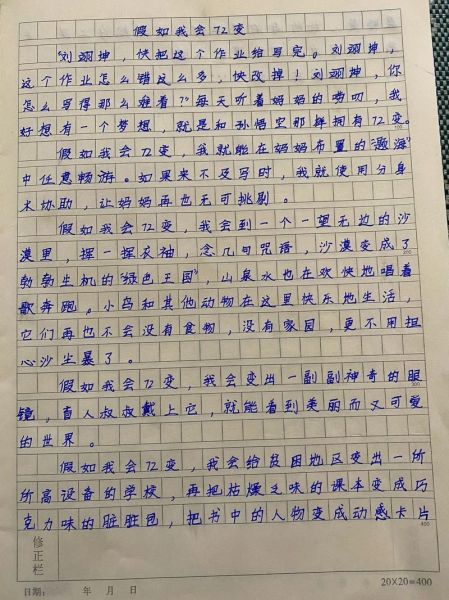 假如我会72变
“刘翊坤，快把这个作业给写完。刘翊坤，
这个作业怎么错这么多，快改掉！刘翊坤，你
怎么写得那么难看？”每天听着妈妈的唠叨，我
好想有一个梦想，就是和孙悟空那样拥有72变。
100
假如我会72变，我就能在妈妈布置的“题海”
中任意畅游。如果来不及写时，我就使用分身
术协助，让妈妈再也无可挑剔。
假如我会72变，我会到一个一望无边的沙
漠里，挥一挥衣袖，念几句咒语，沙漠变成了
200
勃勃生机的“绿色王国”，山泉水也在欢快地唱着
歌奔跑。小鸟和其他动物在这里快乐地生活，
它们再也不会没有食物，没有家园，更不用担
心沙尘暴了。
假如我会72变，我会变出一副副神奇的眼
300
镜，盲人叔叔戴上它，就能看到美丽而又可爱
的世界。
假如我会72变，我会给贫困地区变出一所
所高设备的学校，再把枯燥乏味的课本变成巧
克力味的脏脏团，把书中的人物变成动感卡片
400
修正栏
日期： 年 月 日
20×20=400